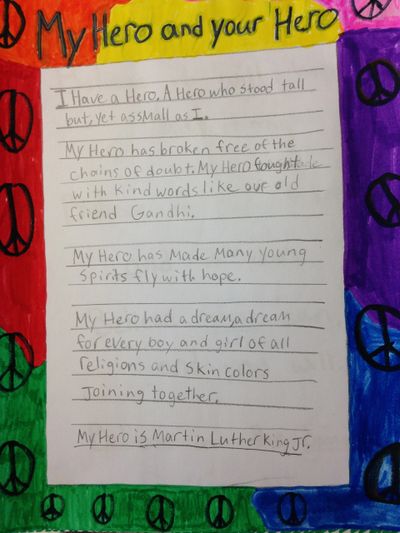 My Hero and your Hero
I Have a Hero. A Hero who stood tall
but, yet assmall as I.
My Hero has broken free of the
chains of doubt. My Hero fought
with kind words like our old
friend Gandhi.
My Hero has Made Many young
spirits fly with hope.
My Hero had a dream, a dream
for every boy and girl of all
religions and skin colors
Joining together.
My Hero is Martin Luther King Jr.